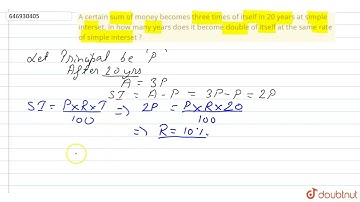 646930405
A certain sum of money becomes three times of itself in 20 years at simple
interset. In how many years does it become double of itself at the same rate
of simple interset ?
Let Principal be 'P'
After 20 yrs
A = 3P
SI = A - P = 3P - P = 2P
SI = P x R x T / 100 => 2P = P x R x 20 / 100
=> R = 10%.
doubtnut